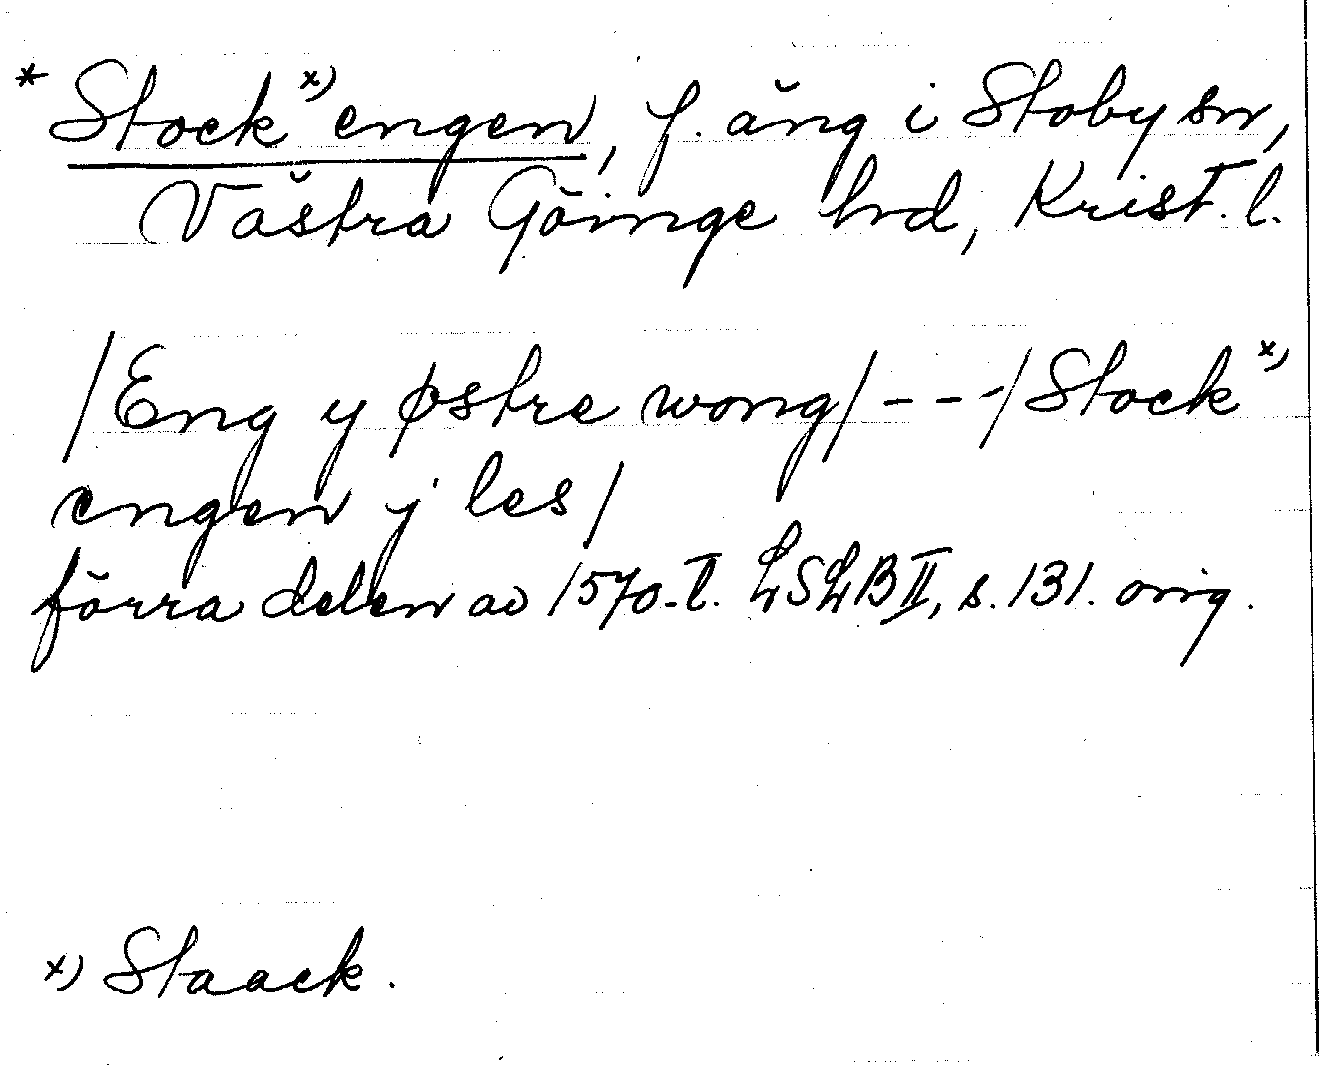 * Stock x) engen, f. äng i Stoby sn,
Västra Göinge hrd, Krist. l.
/Eng y østre wong/ - - - /Stock x)
engen j les/
förra delen av 1570-t. LSLB II, s. 131. orig.
x) Staack.